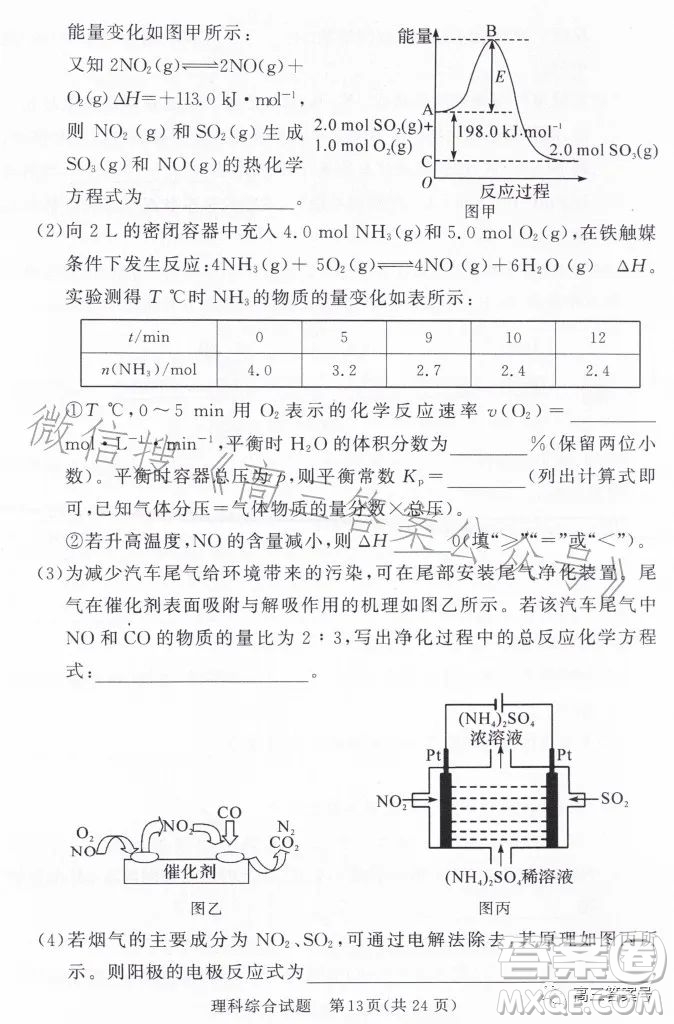 能量变化如图甲所示：
又知 2NO₂(g)⇌2NO(g)+
O₂(g) ΔH=+113.0 kJ·mol⁻¹,
则 NO₂(g)和SO₂(g)生成
SO₃(g)和 NO(g)的热化学
方程式为________。
能量
B
E
A
2.0 mol SO₂(g)+
1.0 mol O₂(g)
198.0 kJ·mol⁻¹
2.0 mol SO₃(g)
C
O
反应过程
图甲
(2)向 2 L 的密闭容器中充入 4.0 mol NH₃(g)和 5.0 mol O₂(g),在铁触媒
条件下发生反应:4NH₃(g)+ 5O₂(g)⇌4NO(g)+6H₂O(g) ΔH。
实验测得 T ℃时 NH₃的物质的量变化如表所示:
t/min 0 5 9 10 12
n(NH₃)/mol 4.0 3.2 2.7 2.4 2.4
①T ℃,0～5 min 用 O₂ 表示的化学反应速率 v(O₂)=________
mol·L⁻¹·min⁻¹,平衡时 H₂O 的体积分数为________%(保留两位小
数)。平衡时容器总压为 p,则平衡常数 Kₚ=________(列出计算式即
可,已知气体分压=气体物质的量分数×总压)。
②若升高温度,NO 的含量减小,则 ΔH ____ 0(填“>”“=”或“<”)。
(3)为减少汽车尾气给环境带来的污染,可在尾部安装尾气净化装置。尾
气在催化剂表面吸附与解吸作用的机理如图乙所示。若该汽车尾气中
NO 和 CO 的物质的量比为 2∶3,写出净化过程中的总反应化学方程
式:________________。
O₂
NO
NO₂
CO
N₂
CO₂
催化剂
图乙
(NH₄)₂SO₄
浓溶液
Pt
Pt
NO₂
SO₂
(NH₄)₂SO₄稀溶液
图丙
(4)若烟气的主要成分为 NO₂、SO₂,可通过电解法除去,其原理如图丙所
示。则阳极的电极反应式为________________
理科综合试题 第13页(共24页)
微信搜《高三答案公众号》
高三答案号
答案圈
MXQE.COM